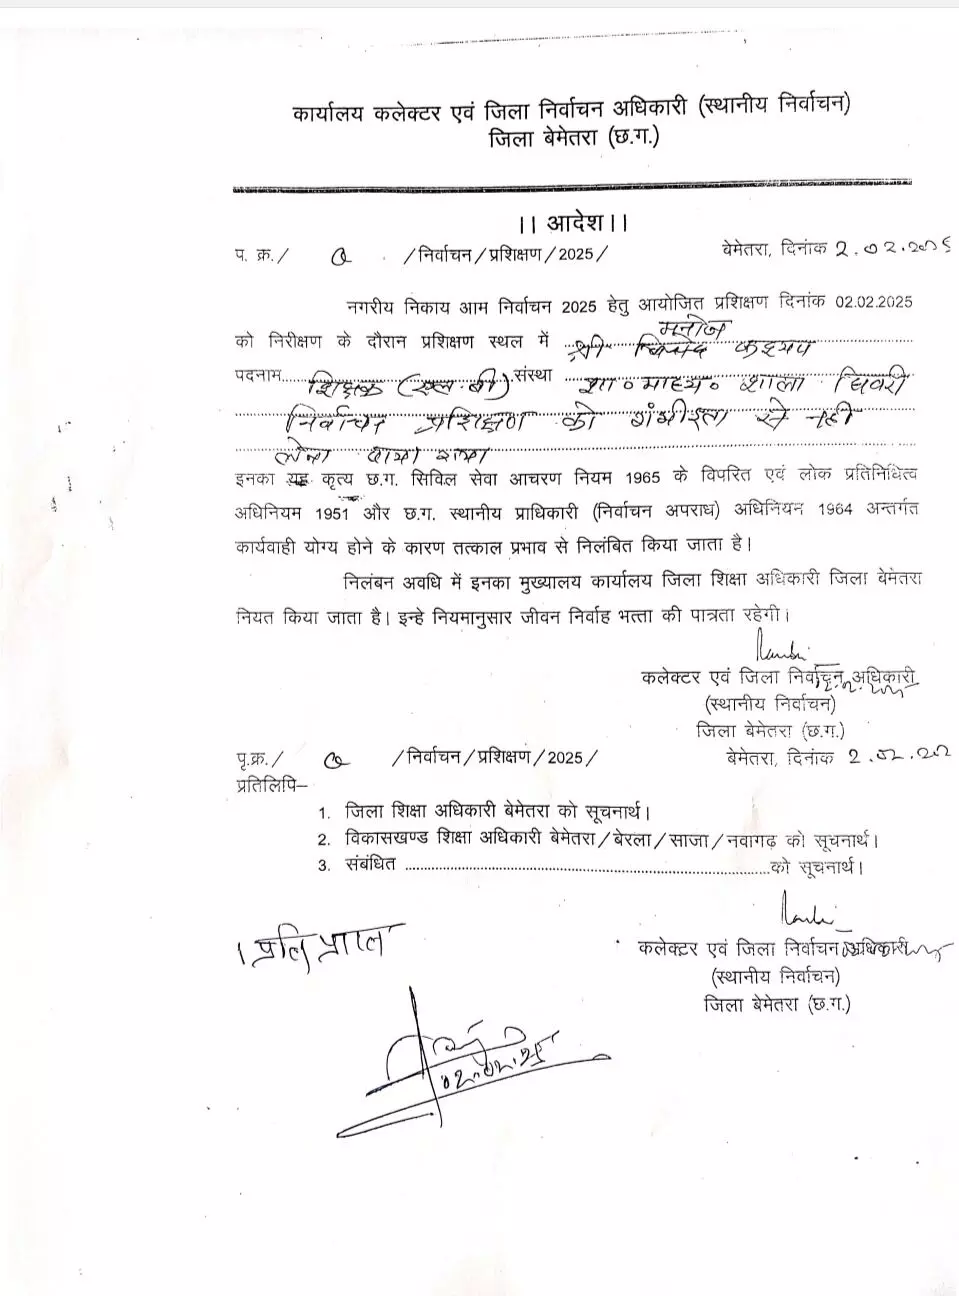 कार्यालय कलेक्टर एवं जिला निर्वाचन अधिकारी (स्थानीय निर्वाचन)
जिला बेमेतरा (छ.ग.)
।। आदेश।।
प. क्र./ /निर्वाचन/प्रशिक्षण/2025/ बेमेतरा, दिनांक 2.02.2025
नगरीय निकाय आम निर्वाचन 2025 हेतु आयोजित प्रशिक्षण दिनांक 02.02.2025
मनोज
को निरीक्षण के दौरान प्रशिक्षण स्थल में श्री कश्यप
पदनाम शिक्षक (एल.बी) संस्था शा॰ माध्य॰ शाला
निर्वाचन प्रशिक्षण को गंभीरता से नही
लेना पाया गया
इनका यह कृत्य छ.ग. सिविल सेवा आचरण नियम 1965 के विपरित एवं लोक प्रतिनिधित्व
अधिनियम 1951 और छ.ग. स्थानीय प्राधिकारी (निर्वाचन अपराध) अधिनियन 1964 अन्तर्गत
कार्यवाही योग्य होने के कारण तत्काल प्रभाव से निलंबित किया जाता है।
निलंबन अवधि में इनका मुख्यालय कार्यालय जिला शिक्षा अधिकारी जिला बेमेतरा
नियत किया जाता है। इन्हे नियमानुसार जीवन निर्वाह भत्ता की पात्रता रहेगी।
कलेक्टर एवं जिला निर्वाचन अधिकारी
(स्थानीय निर्वाचन)
जिला बेमेतरा (छ.ग.)
पृ.क्र./ /निर्वाचन/प्रशिक्षण/2025/ बेमेतरा, दिनांक 2.02.202
प्रतिलिपि–
1. जिला शिक्षा अधिकारी बेमेतरा को सूचनार्थ।
2. विकासखण्ड शिक्षा अधिकारी बेमेतरा/बेरला/साजा/नवागढ़ को सूचनार्थ।
3. संबंधित ........ को सूचनार्थ।
कलेक्टर एवं जिला निर्वाचन अधिकारी
(स्थानीय निर्वाचन)
जिला बेमेतरा (छ.ग.)
02.02.25